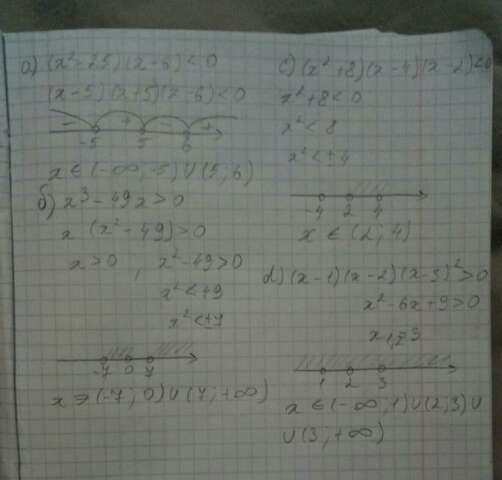 а) (x² - 25)(x - 6) < 0
(x - 5)(x + 5)(x - 6) < 0
- + - +
-5 5 6
x ∈ (-∞; -5) ∪ (5; 6)
б) x³ - 49x > 0
x (x² - 49) > 0
x > 0 , x² - 49 > 0
x² < 49
x² < ±7
-7 0 7
x ∋ (-7; 0) ∪ (7; +∞)
c) (x² + 8)(x - 4)(x - 2) < 0
x² + 8 < 0
x² < 8
x² < ±4
-4 2 4
x ∈ (2; 4)
d) (x - 1)(x - 2)(x - 3)² > 0
x² - 6x + 9 > 0
1 2 3
x ∈ (-∞; 1) ∪ (2; 3) ∪
∪ (3; +∞)